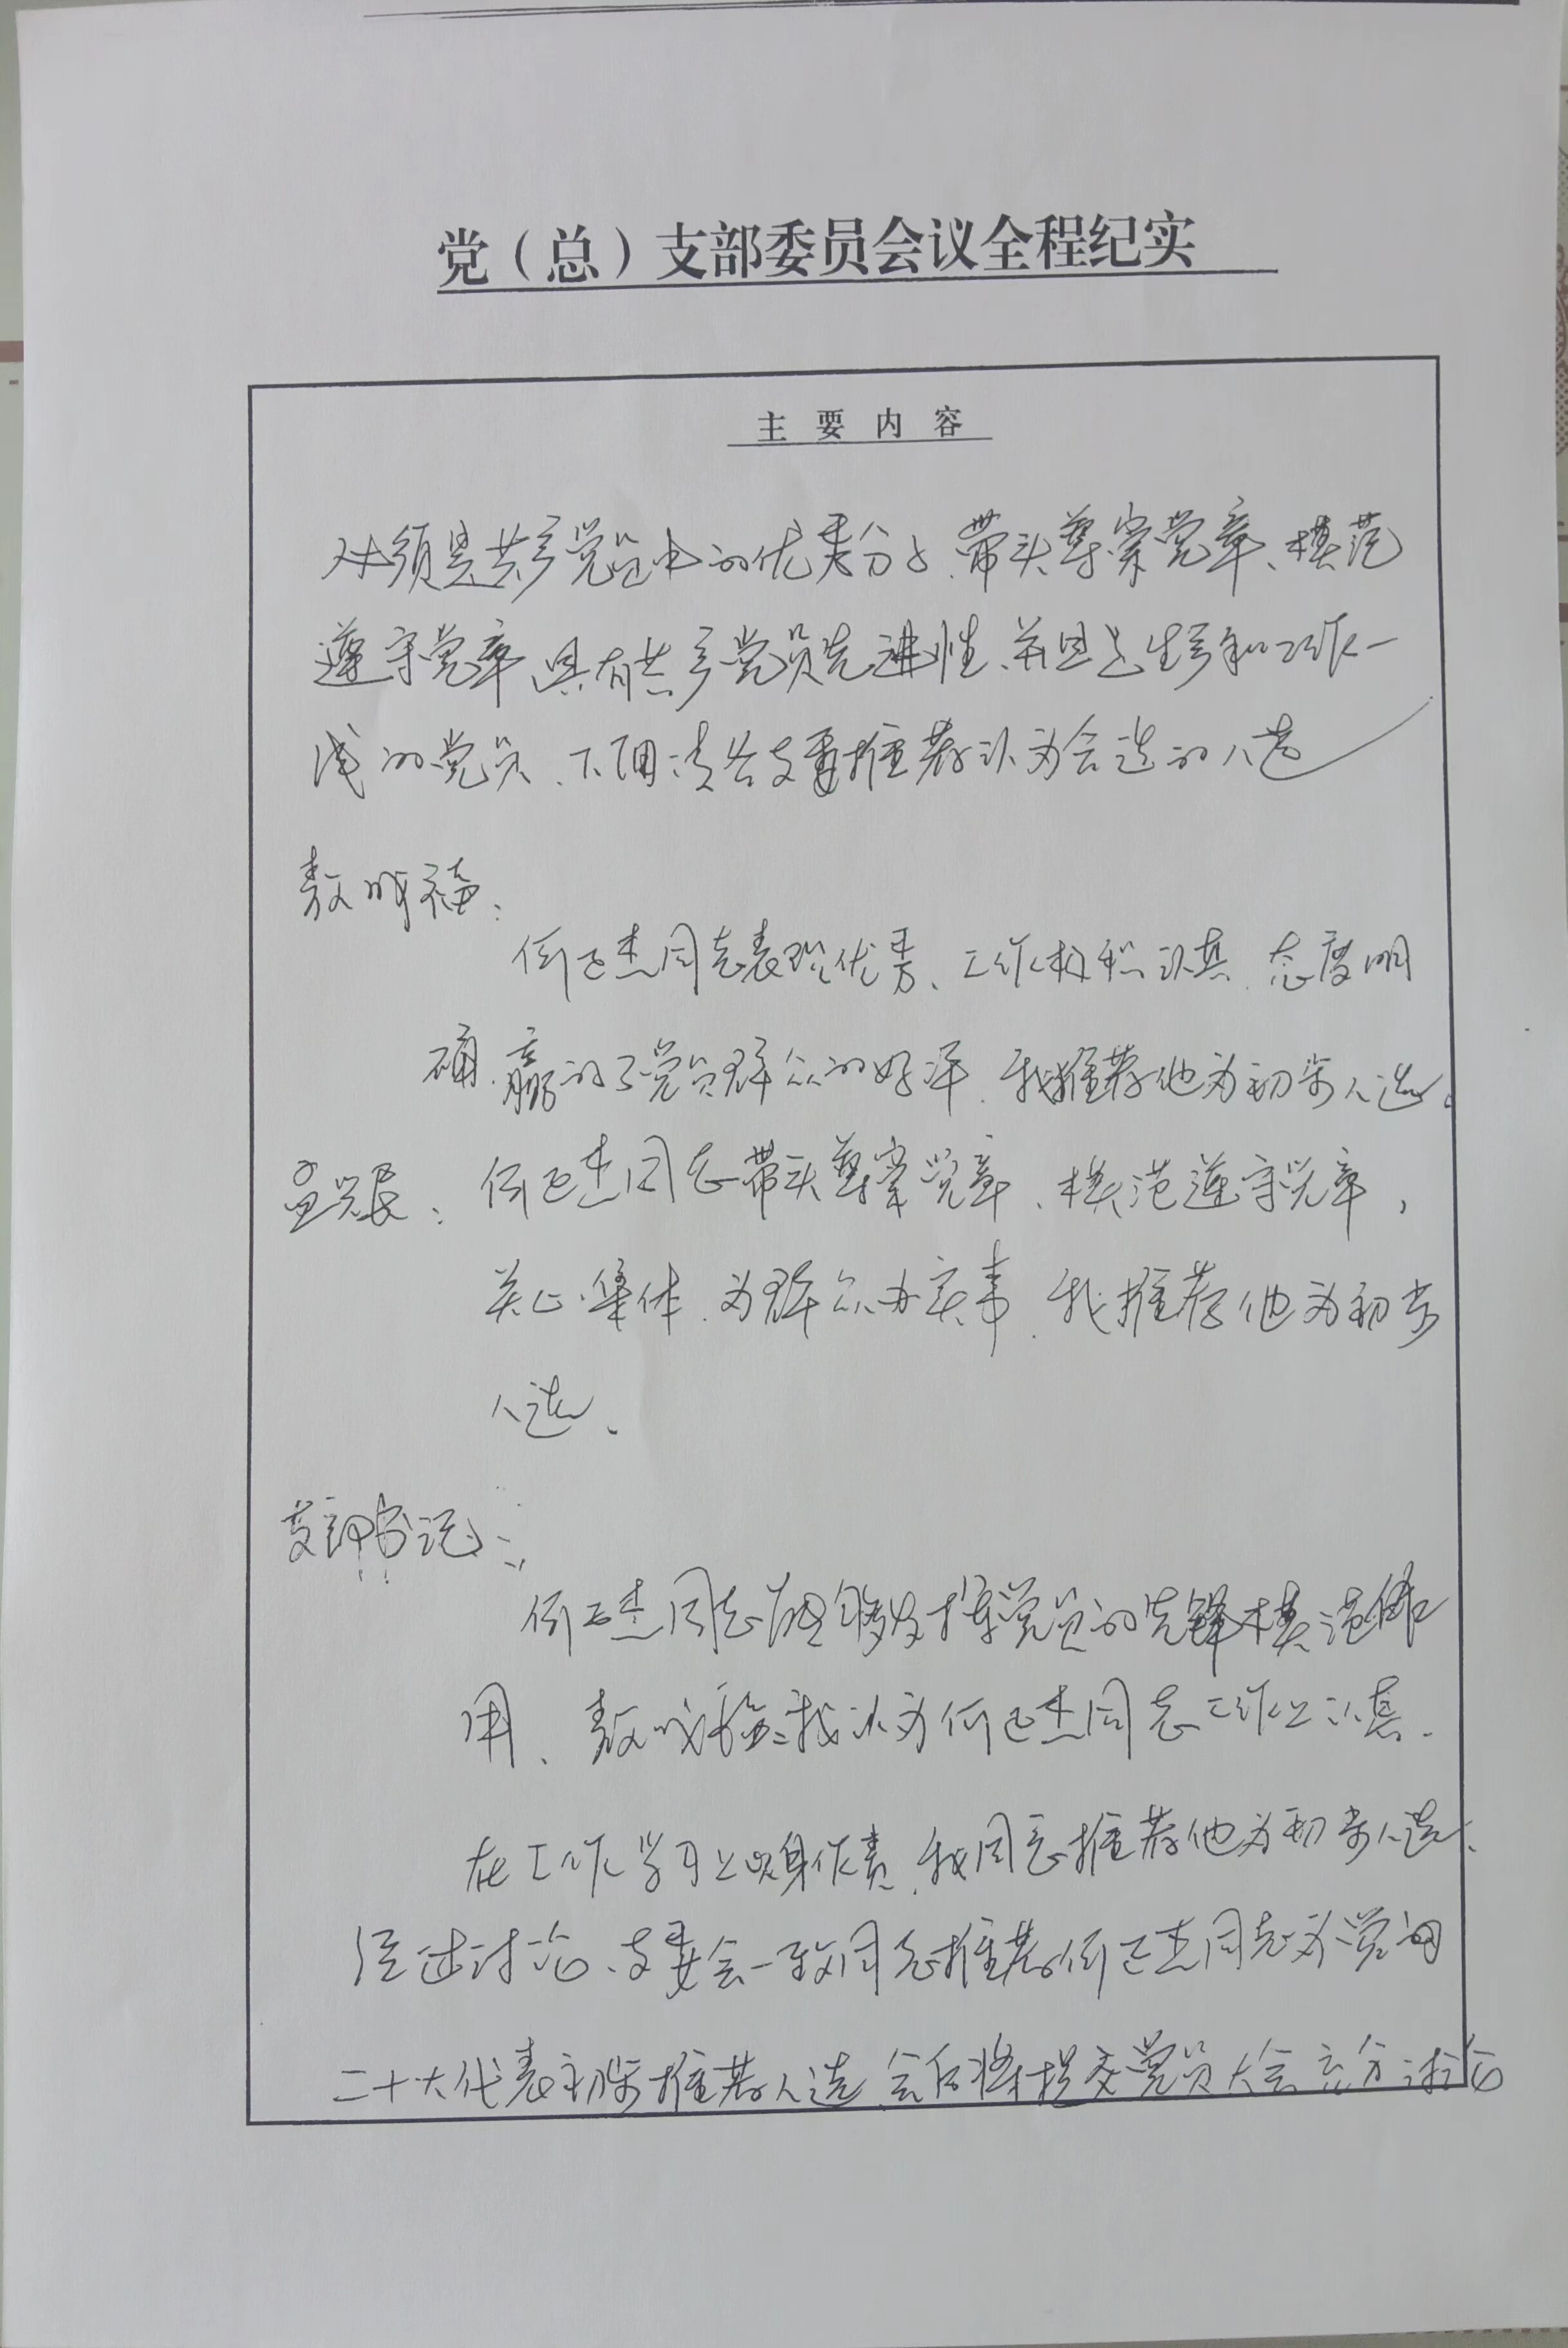 党（总）支部委员会议全程纪实
主要内容
必须是共产党员中的优秀分子、带头尊崇党章、模范
遵守党章 具有共产党员先进性、并且是生产和工作一
线的党员、下面请各支委推荐认为合适的人选
敖成福：
何正杰同志表现优秀、工作积极认真、态度明
确、赢的了党员群众的好评、我推荐他为初步人选。
孟兴良：何正杰同志带头尊崇党章、模范遵守党章，
关心集体、为群众办实事、我推荐他为初步
人选、
支部书记：
何正杰同志能够发挥党员的先锋模范作
用、敖成福：我认为何正杰同志工作上认真、
在工作学习上以身作责、我同意推荐他为初步人选、
经过讨论、支委会一致同意推荐何正杰同志为党的
二十大代表初步推荐人选、会后将提交党员大会充分讨论